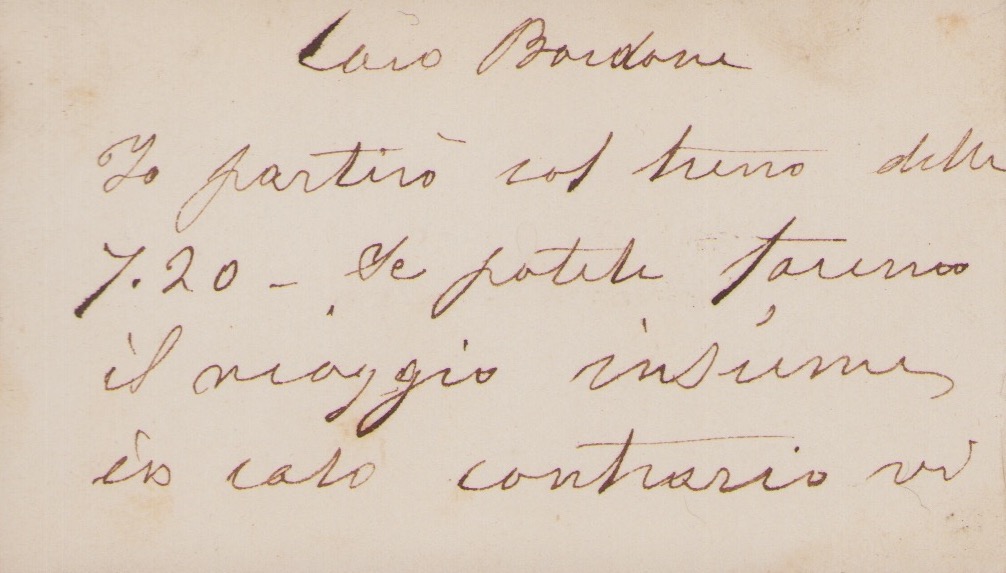 Caro Bordone
Io partirò col treno delle
7.20 - Se potete faremo
il viaggio insieme,
in caso contrario vi